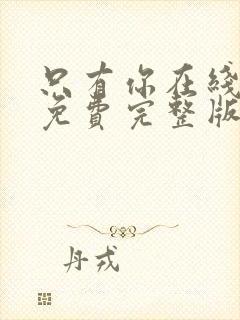 只有你在线
免费完整版
丹戎